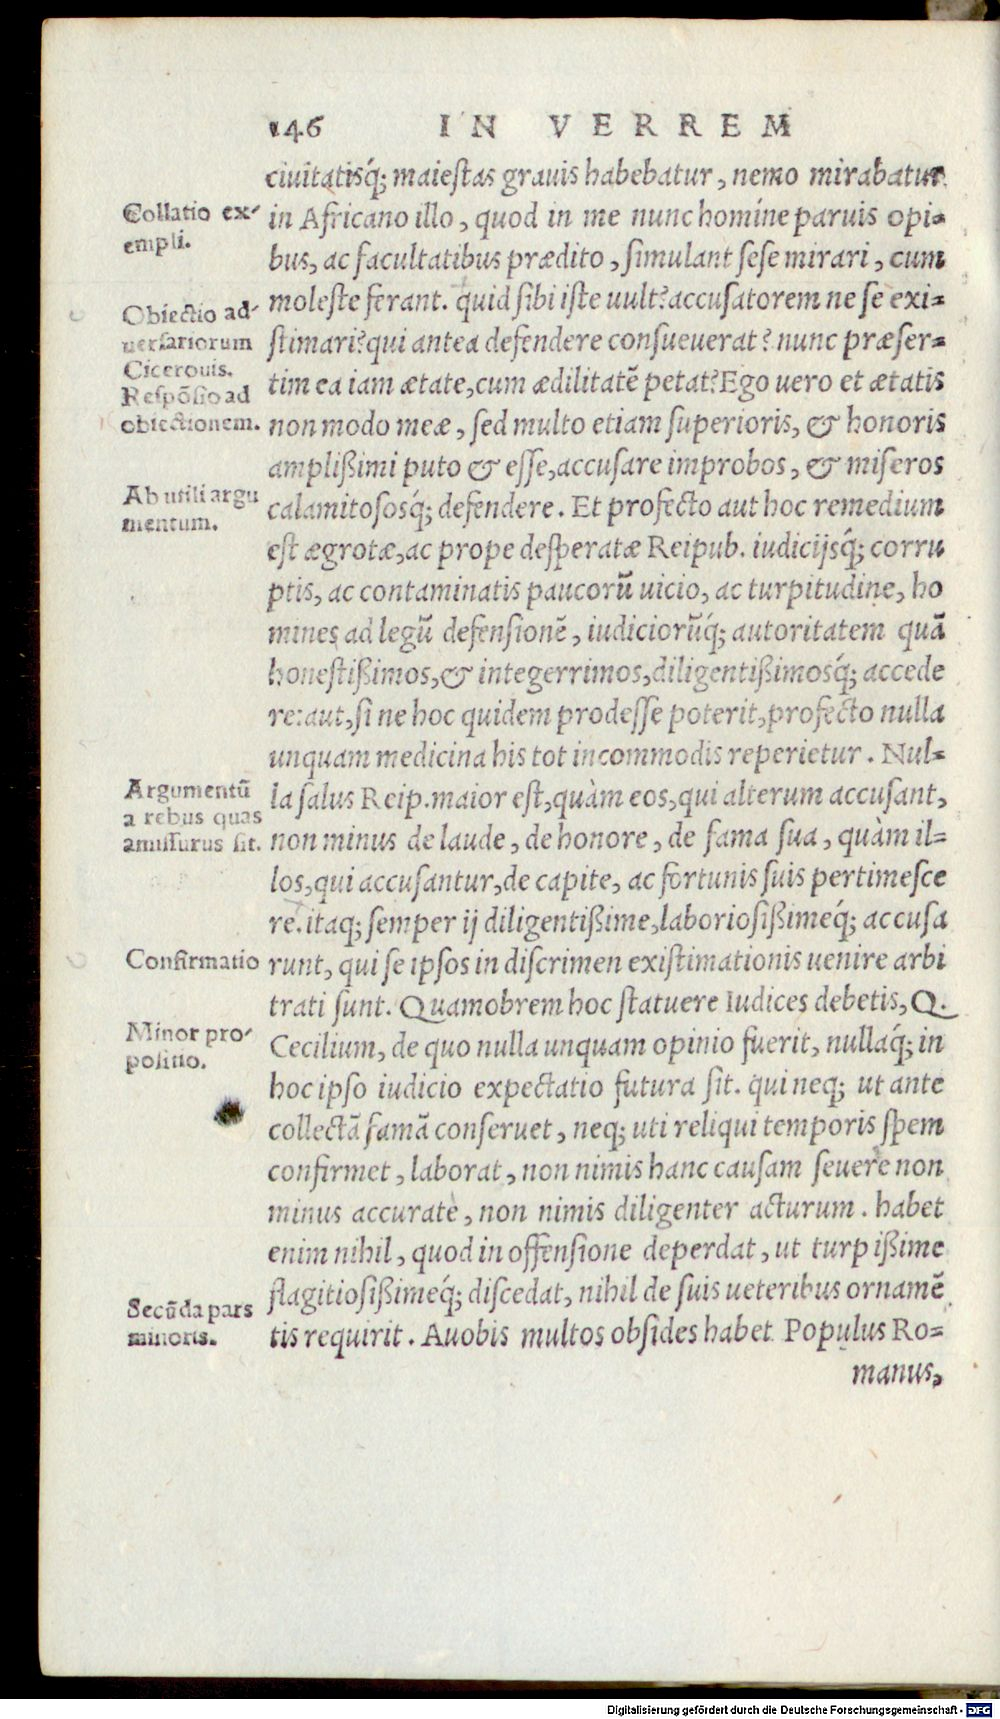 146 IN VERREM
ciuitatisq́; maiestas grauis habebatur, nemo mirabatur
Collatio ex-
empli.
in Africano illo, quod in me nunc homine paruis opi-
bus, ac facultatibus prædito, simulant sese mirari, cum
Obiectio ad-
uersariorum
Ciceronis.
moleste ferant. quid sibi iste uult? accusatorem ne se exi-
stimari? qui antea defendere consueuerat? nunc præser-
Respõsio ad
obiectionem.
tim ea iam ætate, cum ædilitatẽ petat? Ego uero et ætatis
non modo meæ, sed multo etiam superioris, & honoris
amplißimi puto & esse, accusare improbos, & miseros
Ab utili argu
mentum.
calamitososq́; defendere. Et profecto aut hoc remedium
est ægrotæ, ac prope desperatæ Reipub. iudicijsq́; corru
ptis, ac contaminatis paucorũ uicio, ac turpitudine, ho
mines ad legũ defensionẽ, iudiciorũq́; autoritatem quã
honestißimos, & integerrimos, diligentißimosq́; accede
re: aut, si ne hoc quidem prodesse poterit, profecto nulla
unquam medicina his tot incommodis reperietur. Nul-
Argumentũ
a rebus quas
amissurus sit.
la salus Reip. maior est, quàm eos, qui alterum accusant,
non minus de laude, de honore, de fama sua, quàm il-
los, qui accusantur, de capite, ac fortunis suis pertimesce
re. itaq; semper ij diligentißime, laboriosißimeq́; accusa
Confirmatio
runt, qui se ipsos in discrimen existimationis uenire arbi
trati sunt. Quamobrem hoc statuere Iudices debetis, Q.
Minor pro-
positio.
Cecilium, de quo nulla unquam opinio fuerit, nullaq́; in
hoc ipso iudicio expectatio futura sit. qui neq; ut ante
collectã famã conseruet, neq; uti reliqui temporis spem
confirmet, laborat, non nimis hanc causam seuere non
minus accurate, non nimis diligenter acturum. habet
enim nihil, quod in offensione deperdat, ut turpißime
flagitiosißimeq́; discedat, nihil de suis ueteribus ornamẽ
Secũda pars
minoris.
tis requirit. A uobis multos obsides habet Populus Ro-
manus,
Digitalisierung gefördert durch die Deutsche Forschungsgemeinschaft - DFG